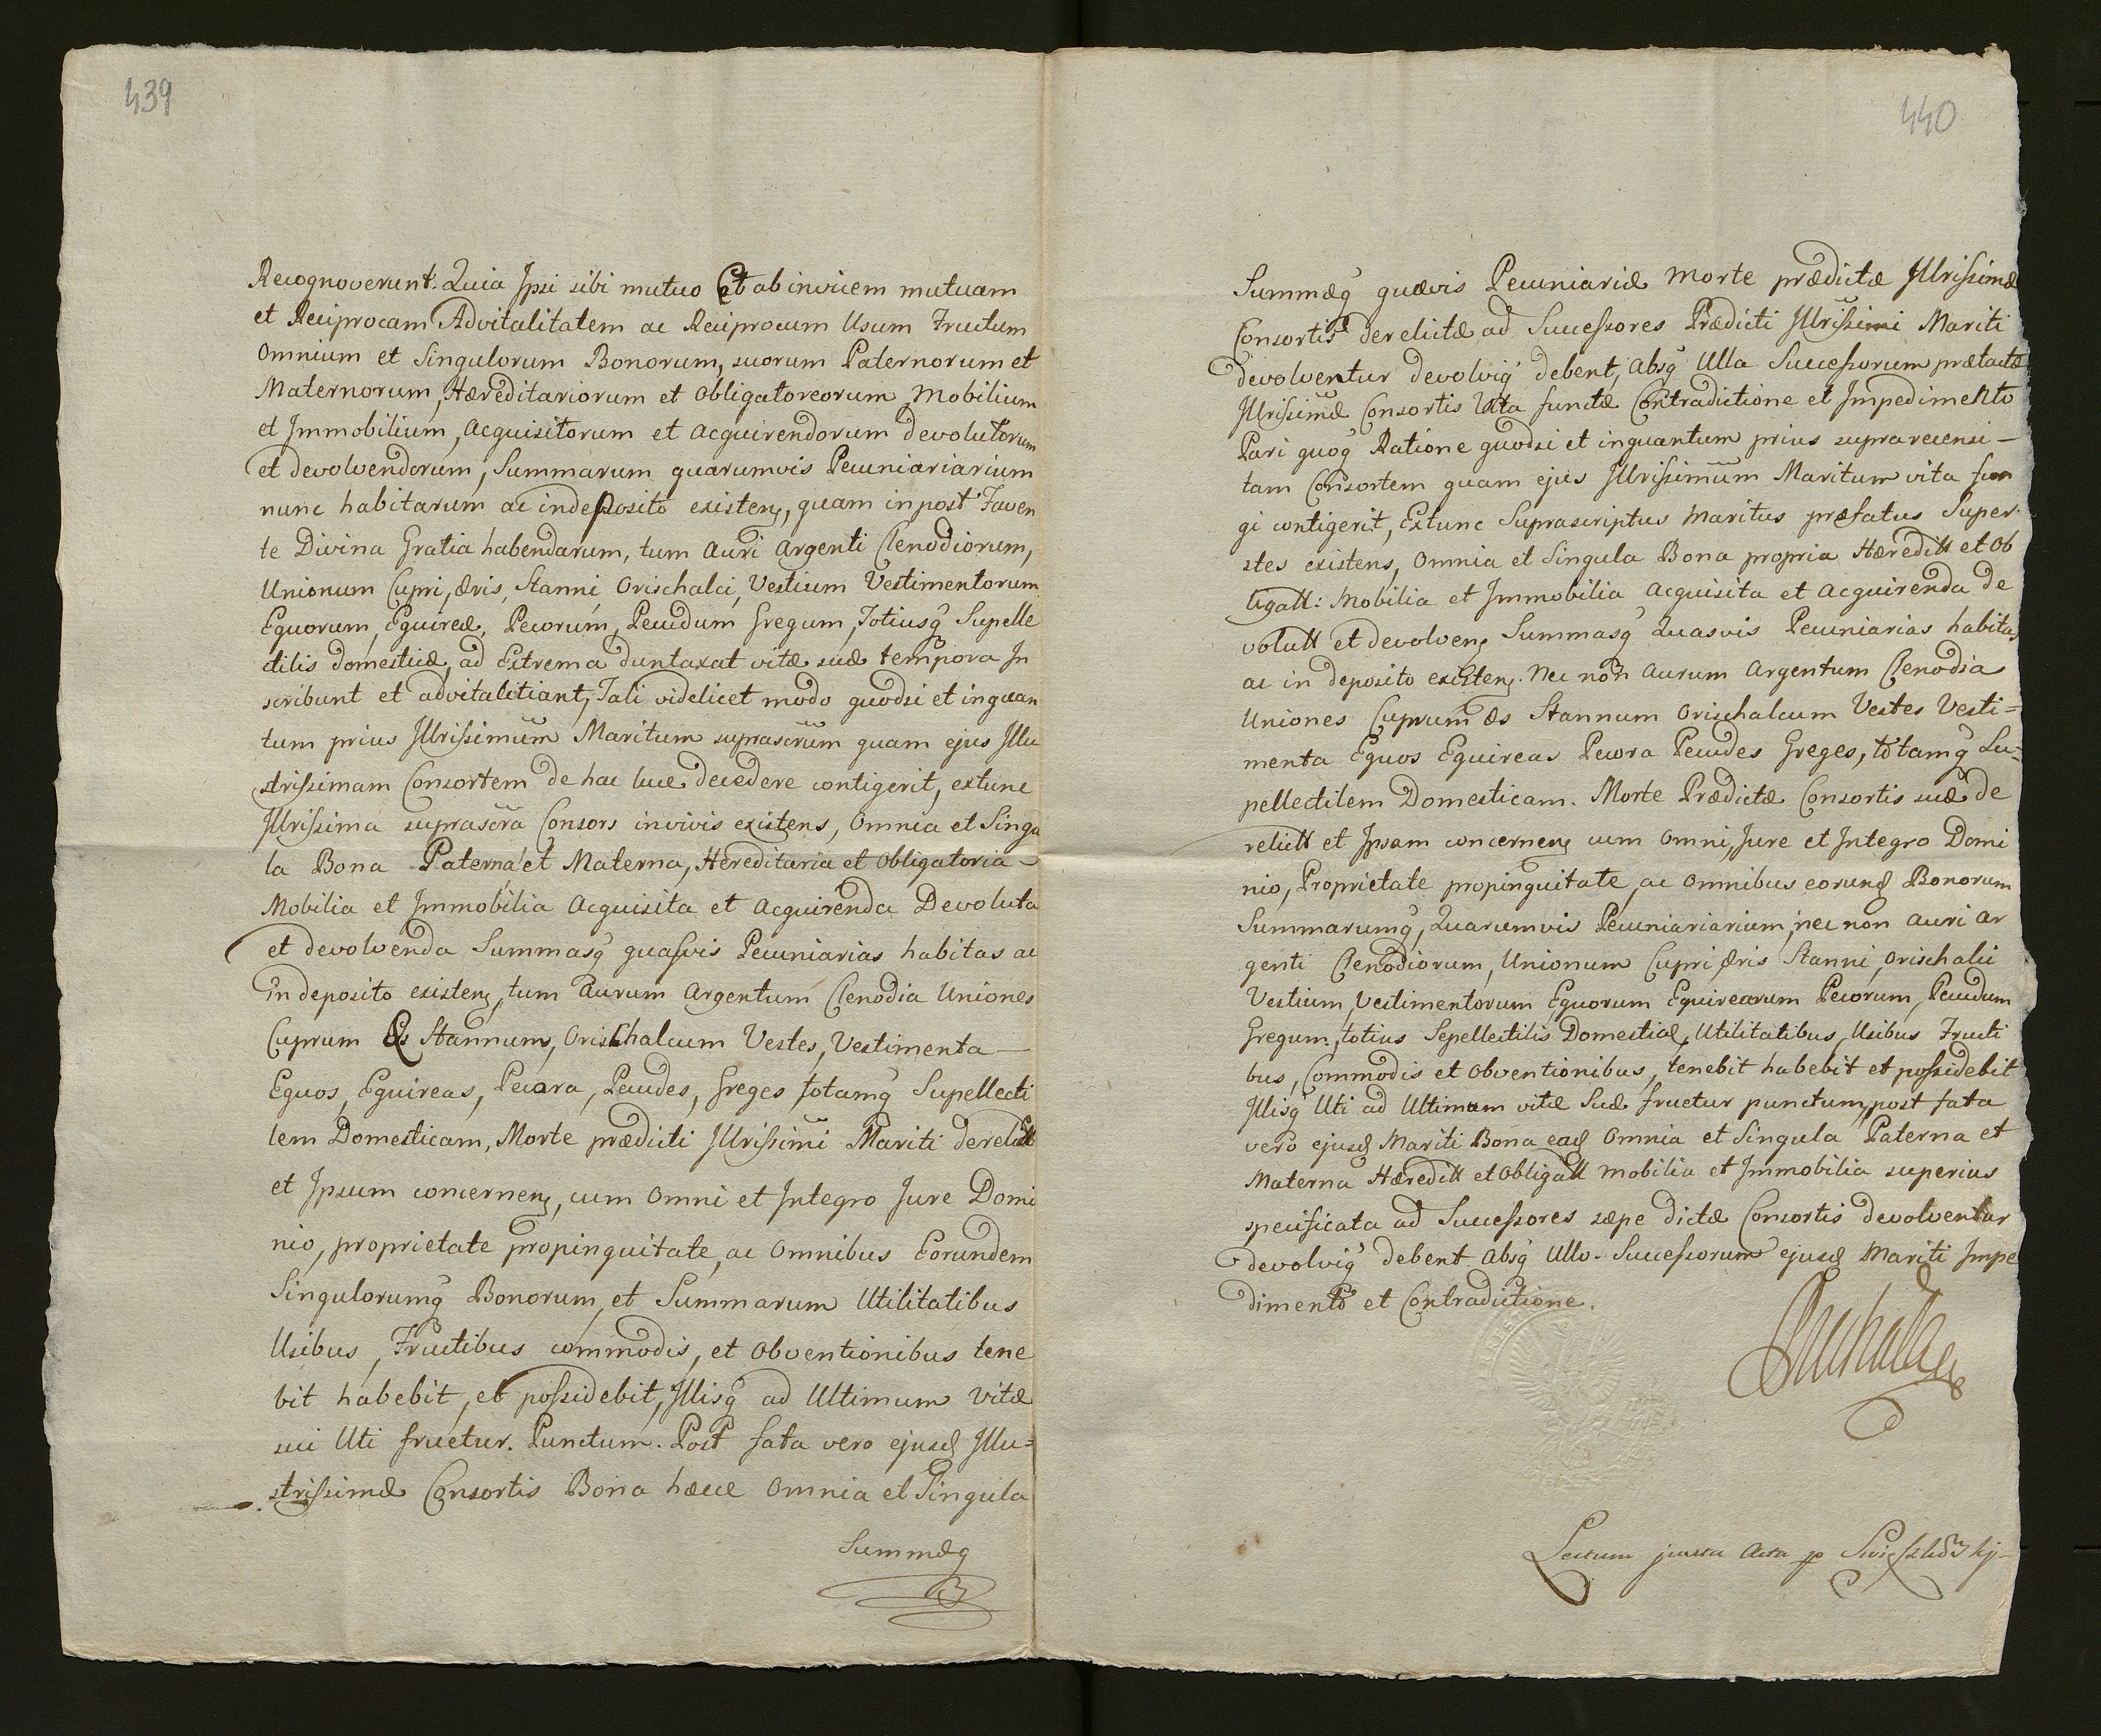 439
Recognoverunt. Quia Ipsi sibi mutuo Et ab invicem mutuam
et Reciprocam Advitalitatem ac Reciprocum Usum Fructum
Omnium et Singulorum Bonorum, suorum Paternorum et
Maternorum, Hæreditariorum et Obligatoreorum Mobilium
et Immobilium, Acquisitorum et Acquirendorum devolutorum
et devolvendorum, Summarum quarumvis Pecuniariarium
nunc habitarum ac in deposito existen, quam in post Faven
te Divina Gratia habendarum, tum Auri Argenti Clenodiorum,
Unionum Cupri, Æris, Stanni Orischalci, Vestium Vestimentorum
Equorum, Equireæ, Pecorum, Pecudum Gregum, Totiusq Supelle
ctilis domesticæ, ad Extrema duntaxat vitæ suæ tempora In
scribunt et advitalitiant, Tali videlicet modo quodsi et inquan
tum prius Illrissimum Maritum suprascrum quam ejus Illu
strissimam Consortem de hac luce decedere contigerit, extunc
Illrissima suprascra Consors in vivis existens, Omnia et Singu
la Bona Paterna et Materna, Hereditaria et Obligatoria
Mobilia et Immobilia Acquisita et Acquirenda Devoluta
et devolvenda Summasq quasvis Pecuniarias habitas ac
in deposito existen, tum Aurum Argentum Clenodia Uniones
Cuprum Æs Stannum, Orischalcum Vestes, Vestimenta
Equos, Equireas, Pecora, Pecudes, Greges totamq Supellecti
lem Domesticam, Morte prædicti Illrissimi Mariti derelictt
et Ipsum concernen, cum Omni et Integro Jure Domi
nio, proprietate propinquitate, ac Omnibus Eorundem
Singulorumq Bonorum et Summarum Utilitatibus
Usibus, Fructibus commodis, et Obventionibus tene
bit habebit, et possidebit, Illisq ad Ultimum vitæ
sui Uti fruetur. Punctum. Post fata vero ejusd Illu=
strissimæ Consortis Bona hæce Omnia et Singula
Summæq
440
Summæq quævis Pecuniariæ morte prædictæ Illrissimæ
Consortis derelictæ ad Successores Prædicti Illrissimi Mariti
devolventur devolviq debent, absq Ulla Successorum prætactæ
Illrissimæ Consortis Vita functæ Contradictione et Impedimento
Pari quoq Ratione quodsi et inquantum prius suprarecensi–
tam Consortem quam ejus Illrissimum Maritum vita fun
gi contigerit, Extunc Suprascriptus Maritus præfatus Super
stes existens, Omnia et Singula Bona propria Hæreditt et Ob
ligatt: Mobilia et Immobilia Acquisita et Acquirenda De
volutt et devolven Summasq Quasvis Pecuniarias habitas
ac in deposito existen. Nec non Aurum Argentum Clenodia
Uniones Cuprum Æs Stannum Orischalcum Vestes Vesti=
menta Equos Equireas Pecora Pecudes Greges, totamq Su=
pellectilem Domesticam. Morte Prædictæ Consortis suæ de
relictt et Ipsam concernen cum Omni, Jure et Integro Domi
nio, Proprietate propinquitate, ac Omnibus eorund Bonorum
Summarumq, Quarumvis Pecuniariarium, nec non Auri Ar
genti Clenodiorum, Unionum Cupri Æris Stanni, Orischalci
Vestium, Vestimentorum, Equorum Equirearum Pecorum, Pecudum
Gregum, totius Sepellectilis Domesticæ, Utilitatibus, Usibus Fructi
bus, Commodis et Obventionibus, tenebit habebit et possidebit
Illisq Uti ad Ultimam vitæ Suæ fruetur punctum, post fata
vero ejusd Mariti Bona ead Omnia et Singula Paterna et
Materna Hæreditt et Obligatt mobilia et Immobilia superius
specificata ad Successores sæpe dictæ Consortis devolventur
devolviq debent Absq Ullo Successorum ejusd Mariti Impe
dimento et Contradictione.
Lectum juxta Acta p